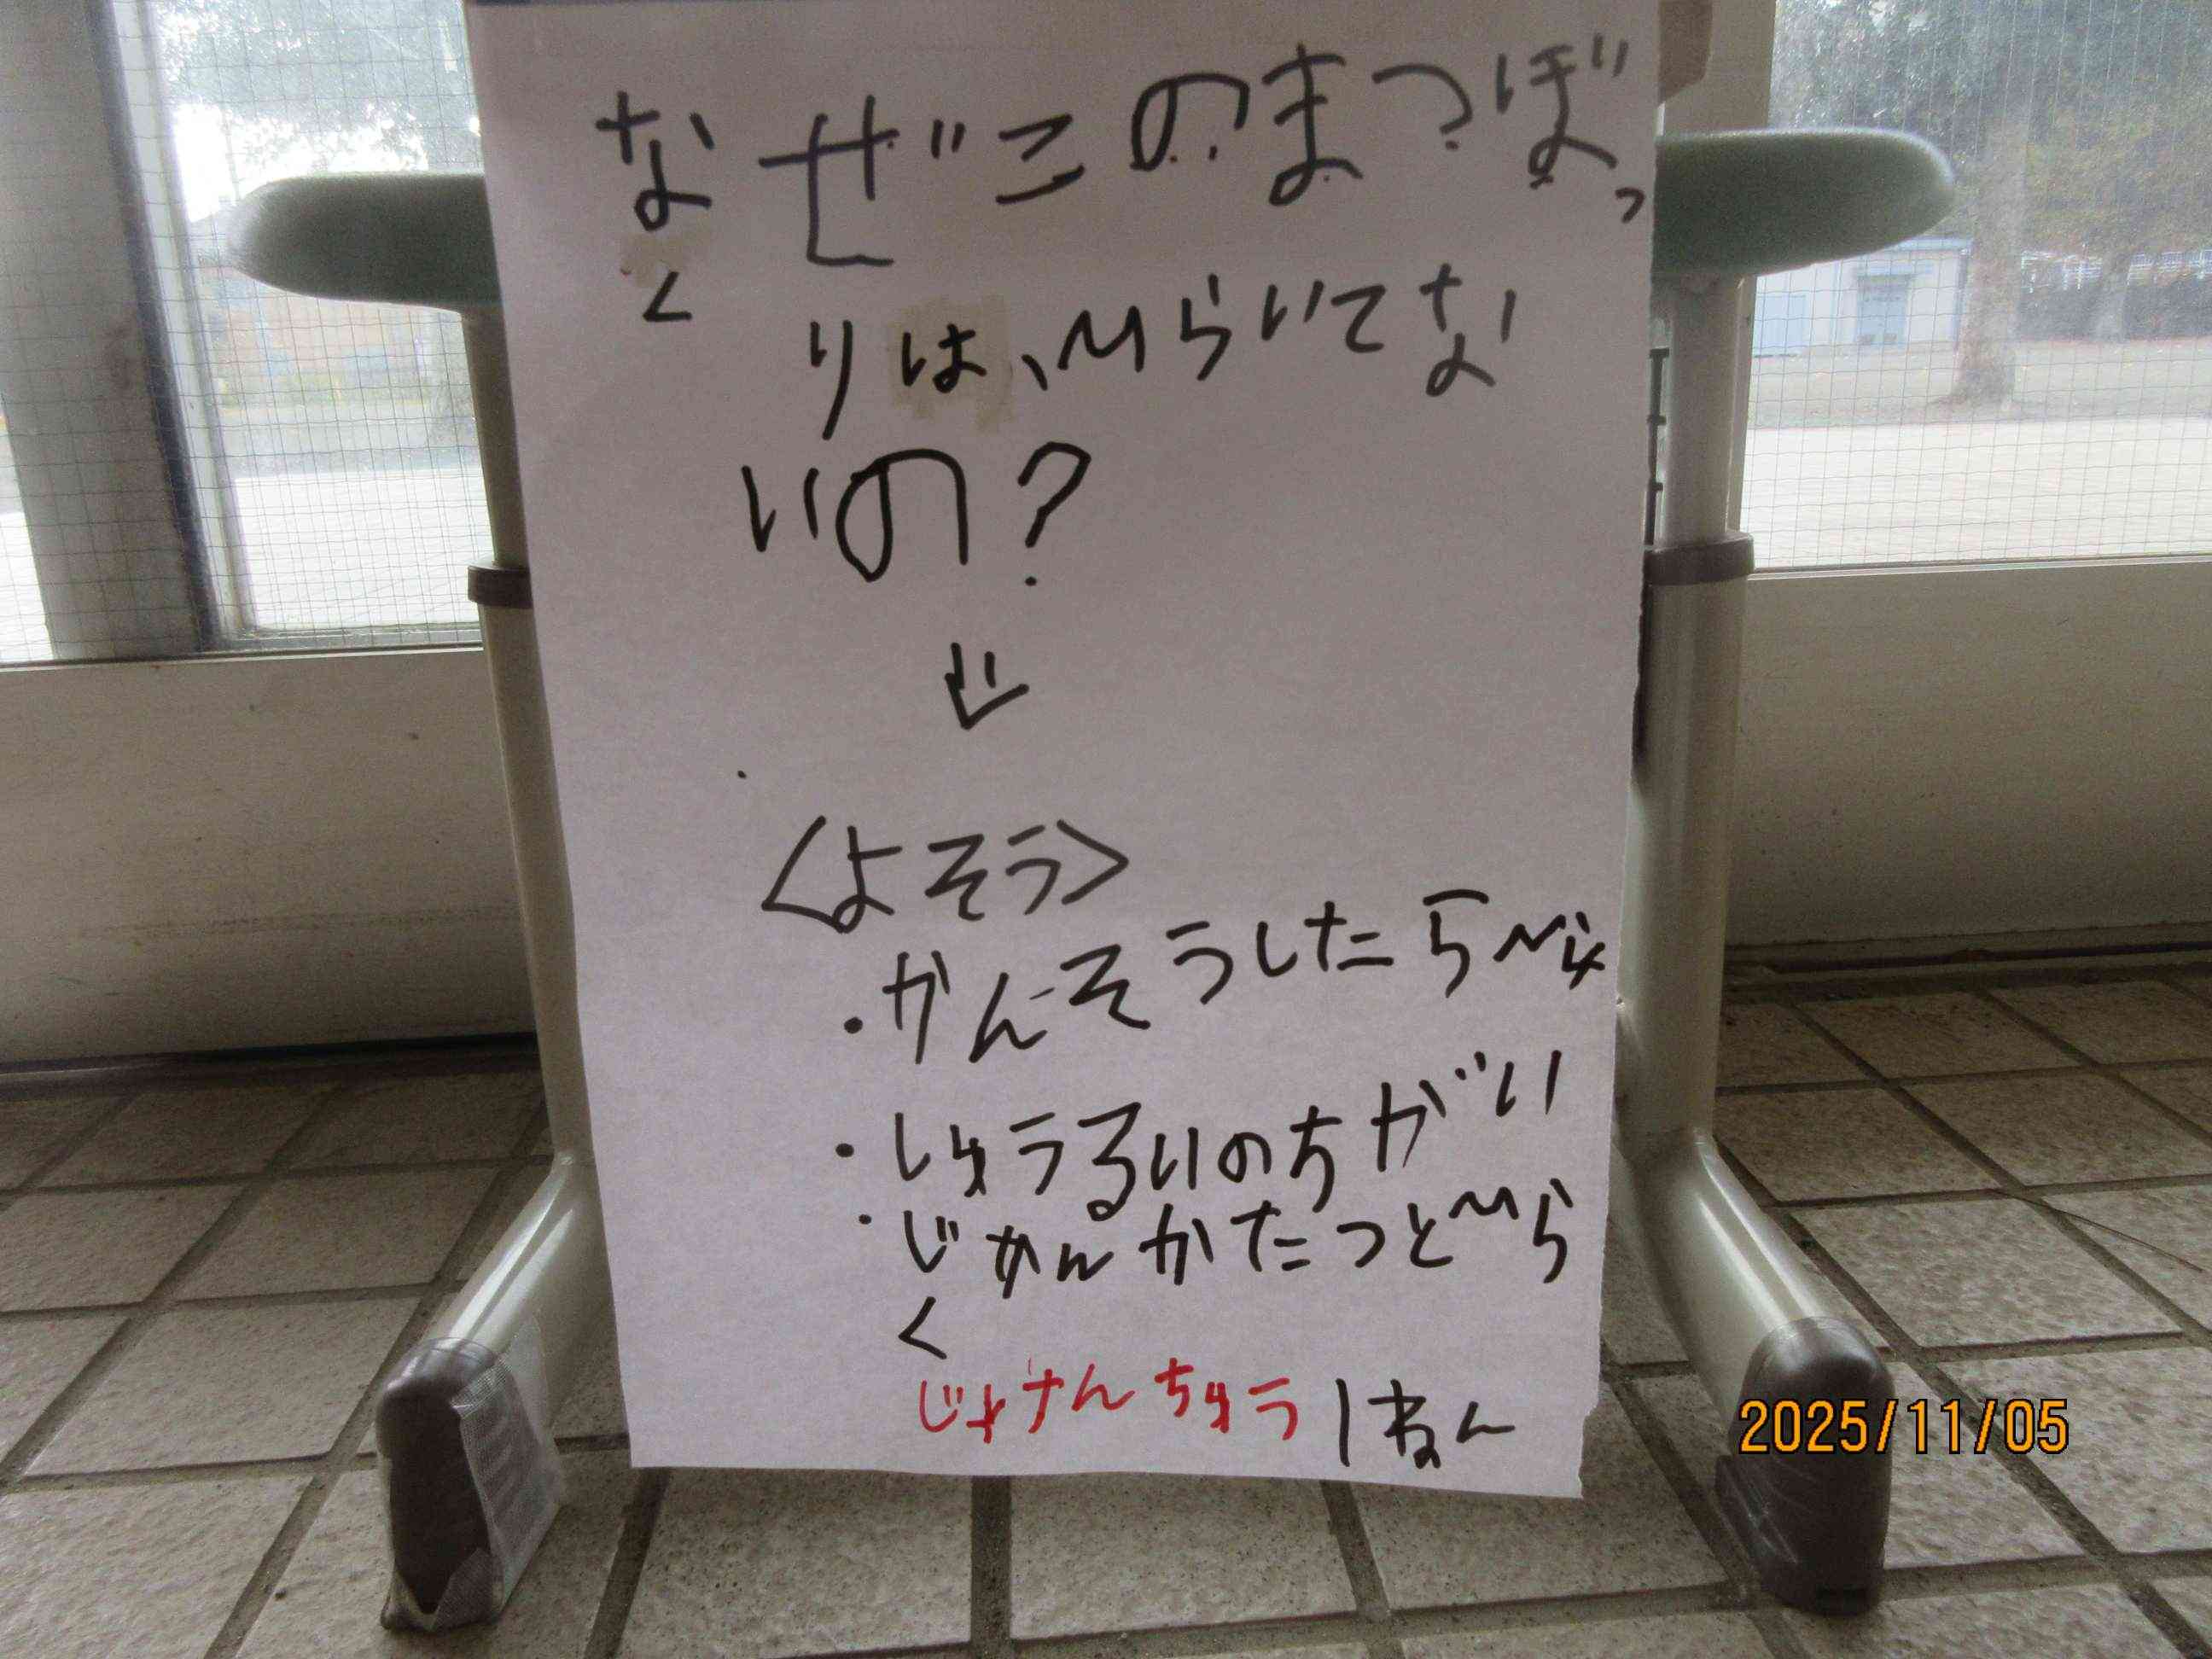 なぜこのまつぼっ
くりは、ひらいてな
いの?
<よそう>
・かんそうしたらひらく
・しゅうるいのちがい
・じかんがたつとひら
く
じっけんちゅう 1ねん
2025/11/05